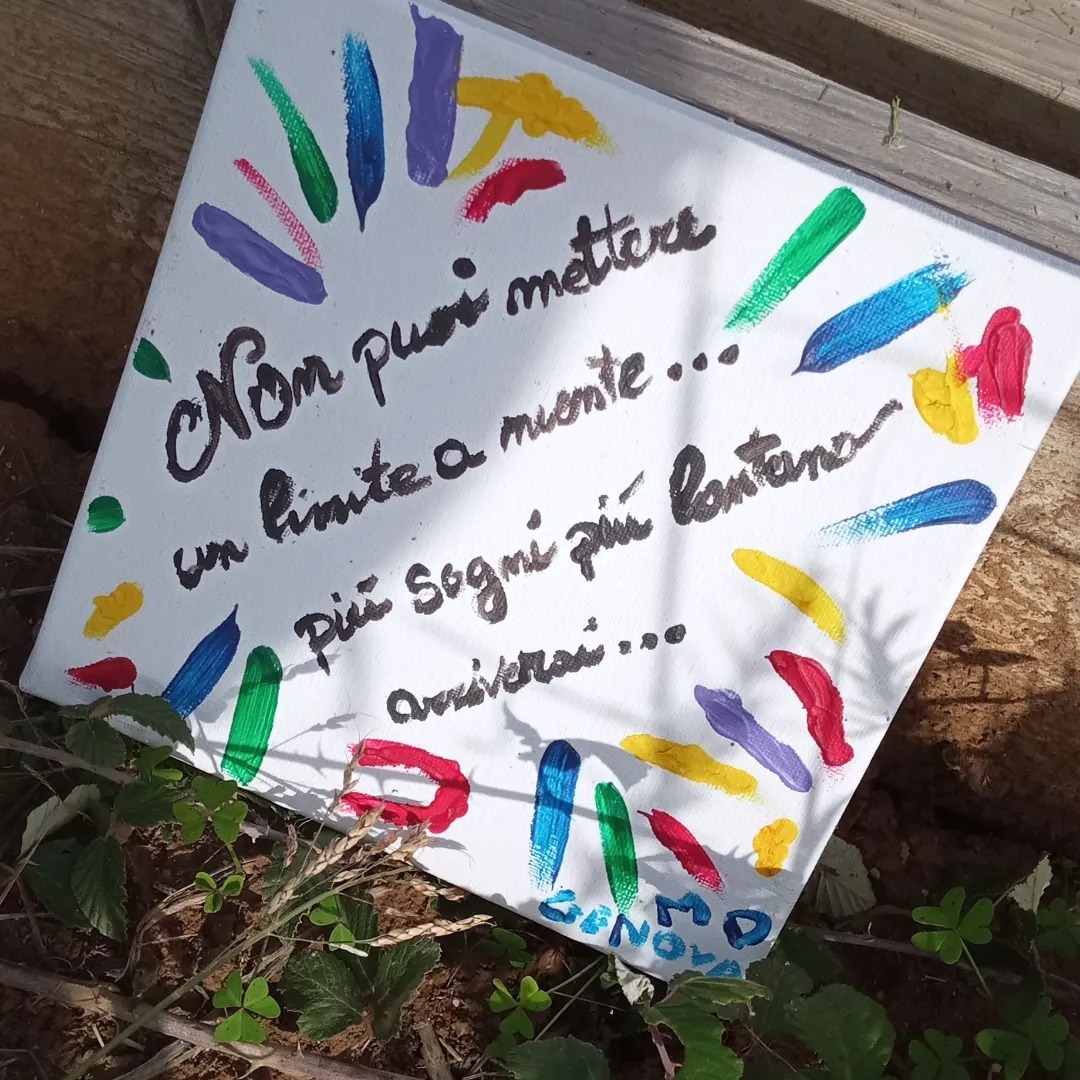 Non puoi mettere
un limite a niente...
più sogni più lontano
arriverai...
MD
GENOVA